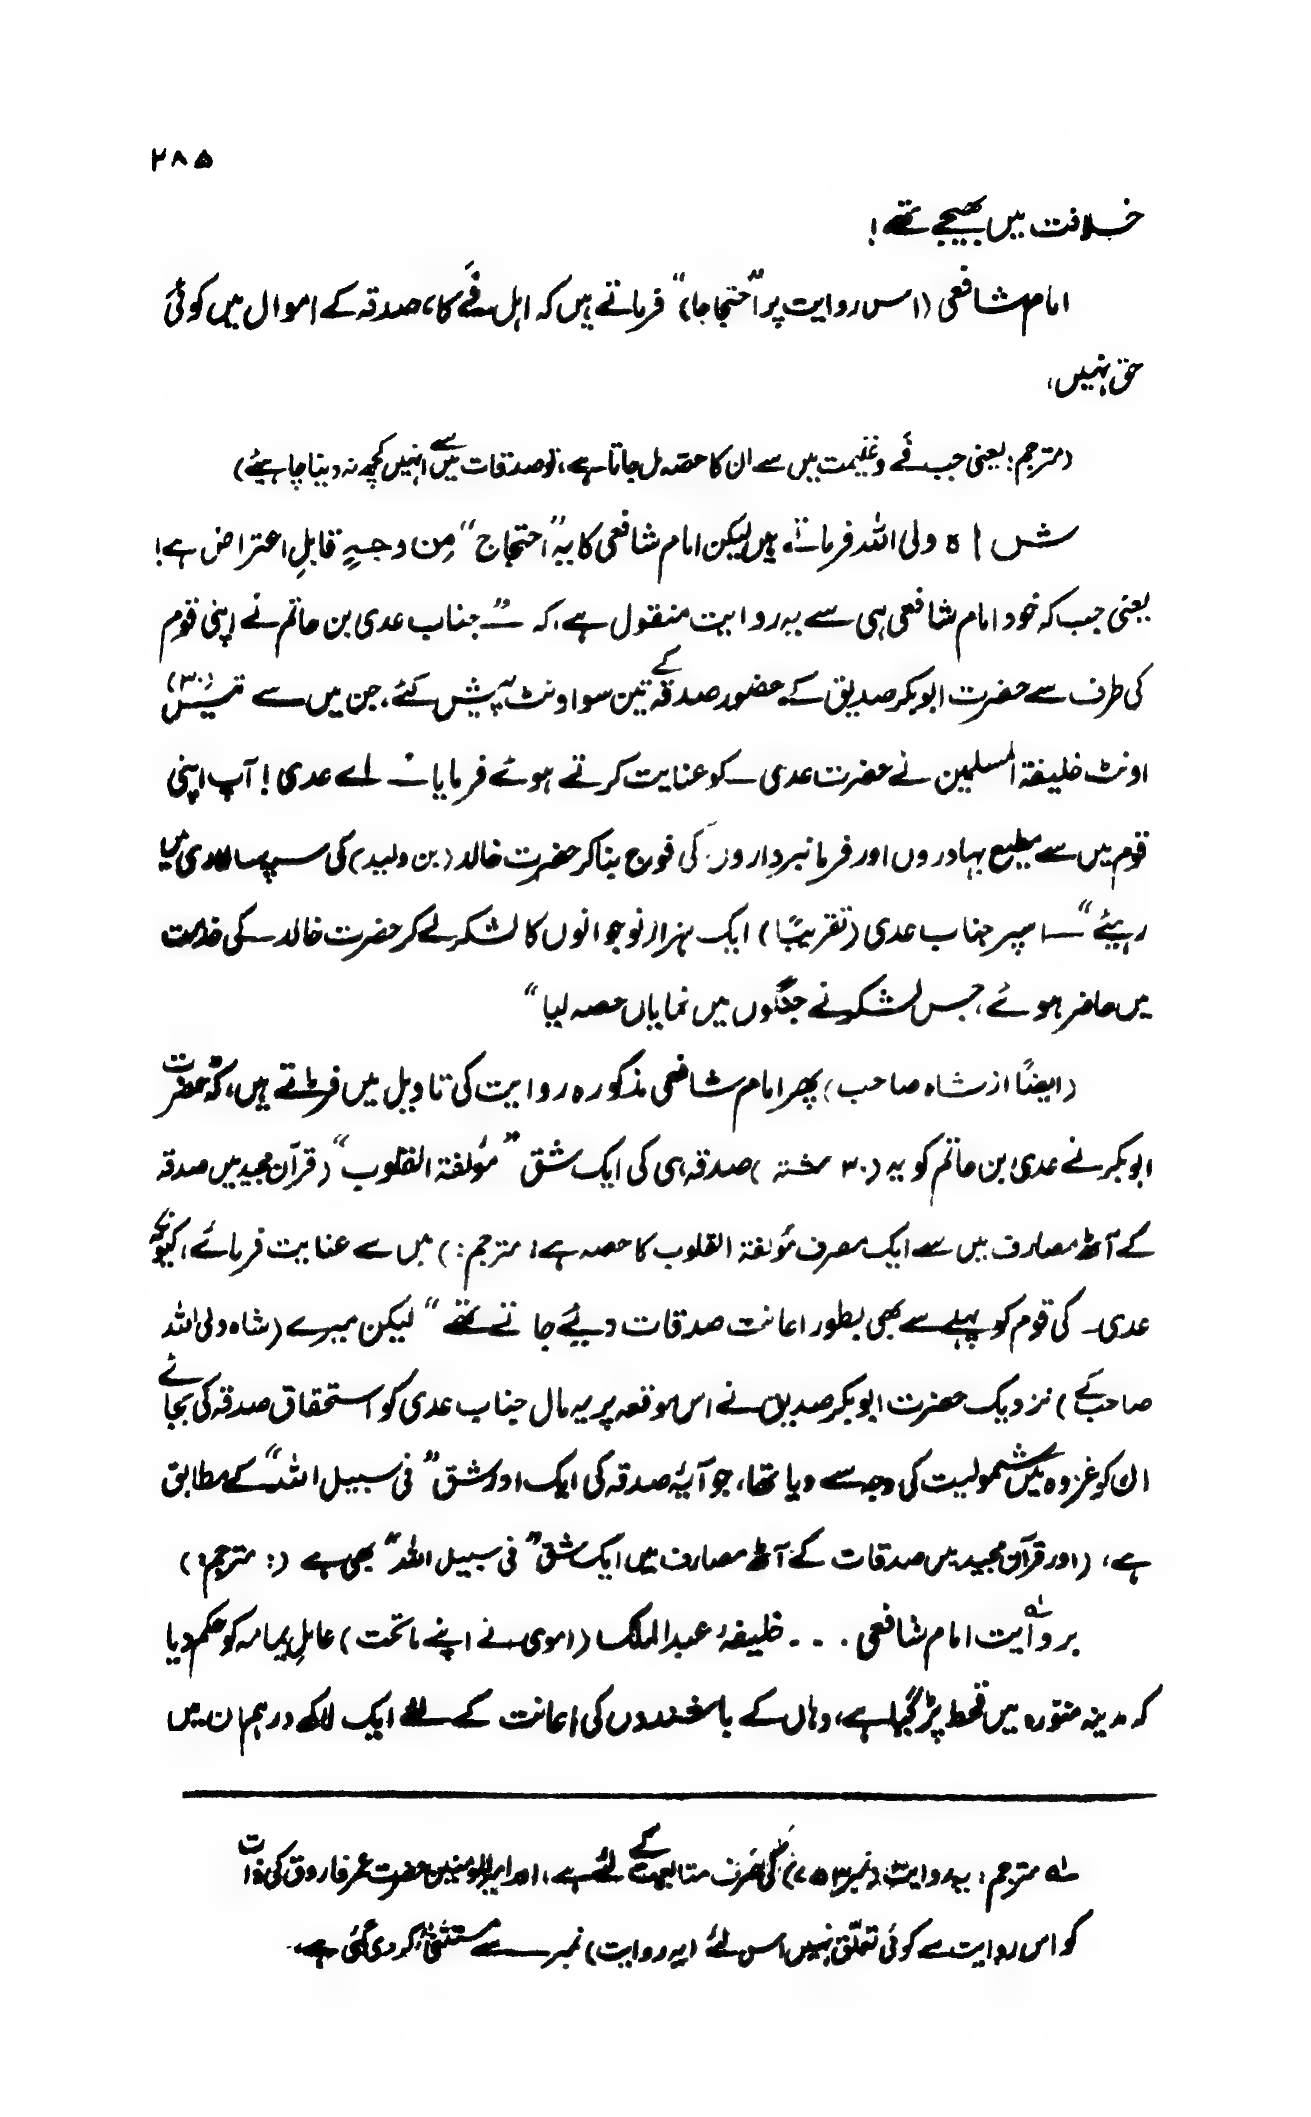 ۲۸۵
خلافت میں بھیجے تھے!
امام شافعی (اس روایت پر "احتجاجا") فرماتے ہیں کہ اہل فَے کا، صدقہ کے اموال میں کوئی
حق نہیں،
(مترجم: یعنی جب فَے و غنیمت میں سے ان کا حصہ مل جاتا ہے، تو صدقات میں سے انہیں کچھ نہ دینا چاہیئے)
شاہ ولی اللہ فرماتے ہیں لیکن امام شافعی کا یہ "احتجاج" مِن وجہٍ قابلِ اعتراض ہے!
یعنی جب کہ خود امام شافعی ہی سے یہ روایت منقول ہے، کہ — "جناب عدی بن حاتم نے اپنی قوم
کی طرف سے حضرت ابوبکر صدیق کے حضور صدقہ کے تین سو اونٹ پیش کئے، جن میں سے تیس (۳۰)
اونٹ خلیفۃ المسلمین نے حضرت عدی کو عنایت کرتے ہوئے فرمایا — اے عدی! آپ اپنی
قوم میں سے مطیع بہادروں اور فرمانبرداروں کی فوج بنا کر حضرت خالد (بن ولید) کی سپہ سالاری میں
رہیئے" — اسپر جناب عدی (تقریبًا) ایک ہزار نوجوانوں کا لشکر لے کر حضرت خالد کی خدمت
میں حاضر ہوئے، جس لشکر نے جنگوں میں نمایاں حصہ لیا"
(ایضًا از شاہ صاحب) پھر امام شافعی مذکورہ روایت کی تاویل میں فرماتے ہیں، کہ "حضرت
ابوبکر نے عدی بن حاتم کو یہ (۳۰ شتر) صدقہ ہی کی ایک شق "مؤلفۃ القلوب" (قرآن مجید میں صدقہ
کے آٹھ مصارف میں سے ایک مصرف مؤلفۃ القلوب کا حصہ ہے: مترجم:) میں سے عنایت فرمائے، کیونکہ
عدی کی قوم کو پہلے سے بھی بطور اعانت صدقات دیئے جاتے تھے" لیکن میرے (شاہ ولی اللہ
صاحب کے) نزدیک حضرت ابوبکر صدیق نے اس موقعہ پر یہ مال جناب عدی کو استحقاق صدقہ کی بجائے
ان کو غزوہ میں شمولیت کی وجہ سے دیا تھا، جو آیۂ صدقہ کی ایک اور شق "فی سبیل اللہ" کے مطابق
ہے، (اور قرآن مجید میں صدقات کے آٹھ مصارف میں ایک شق "فی سبیل اللہ" بھی ہے (: مترجم:)
بروایت امام شافعی . . . خلیفہ عبدالملک (اموی نے اپنے ماتحت) عاملِ یمامہ کو حکم دیا
کہ مدینہ منورہ میں قحط پڑ گیا ہے، وہاں کے باشندوں کی اعانت کے لئے ایک لاکھ درہم ان میں
لہ مترجم: یہ روایت (نمبر ۷۵۳) کی صرف متابعت کے لئے ہے، اور امیر المومنین حضرت عمر فاروق کی ذات
کو اس روایت سے کوئی تعلّق نہیں اس لئے (یہ روایت) نمبر سے مستثنیٰ کر دی گئی ہے۔